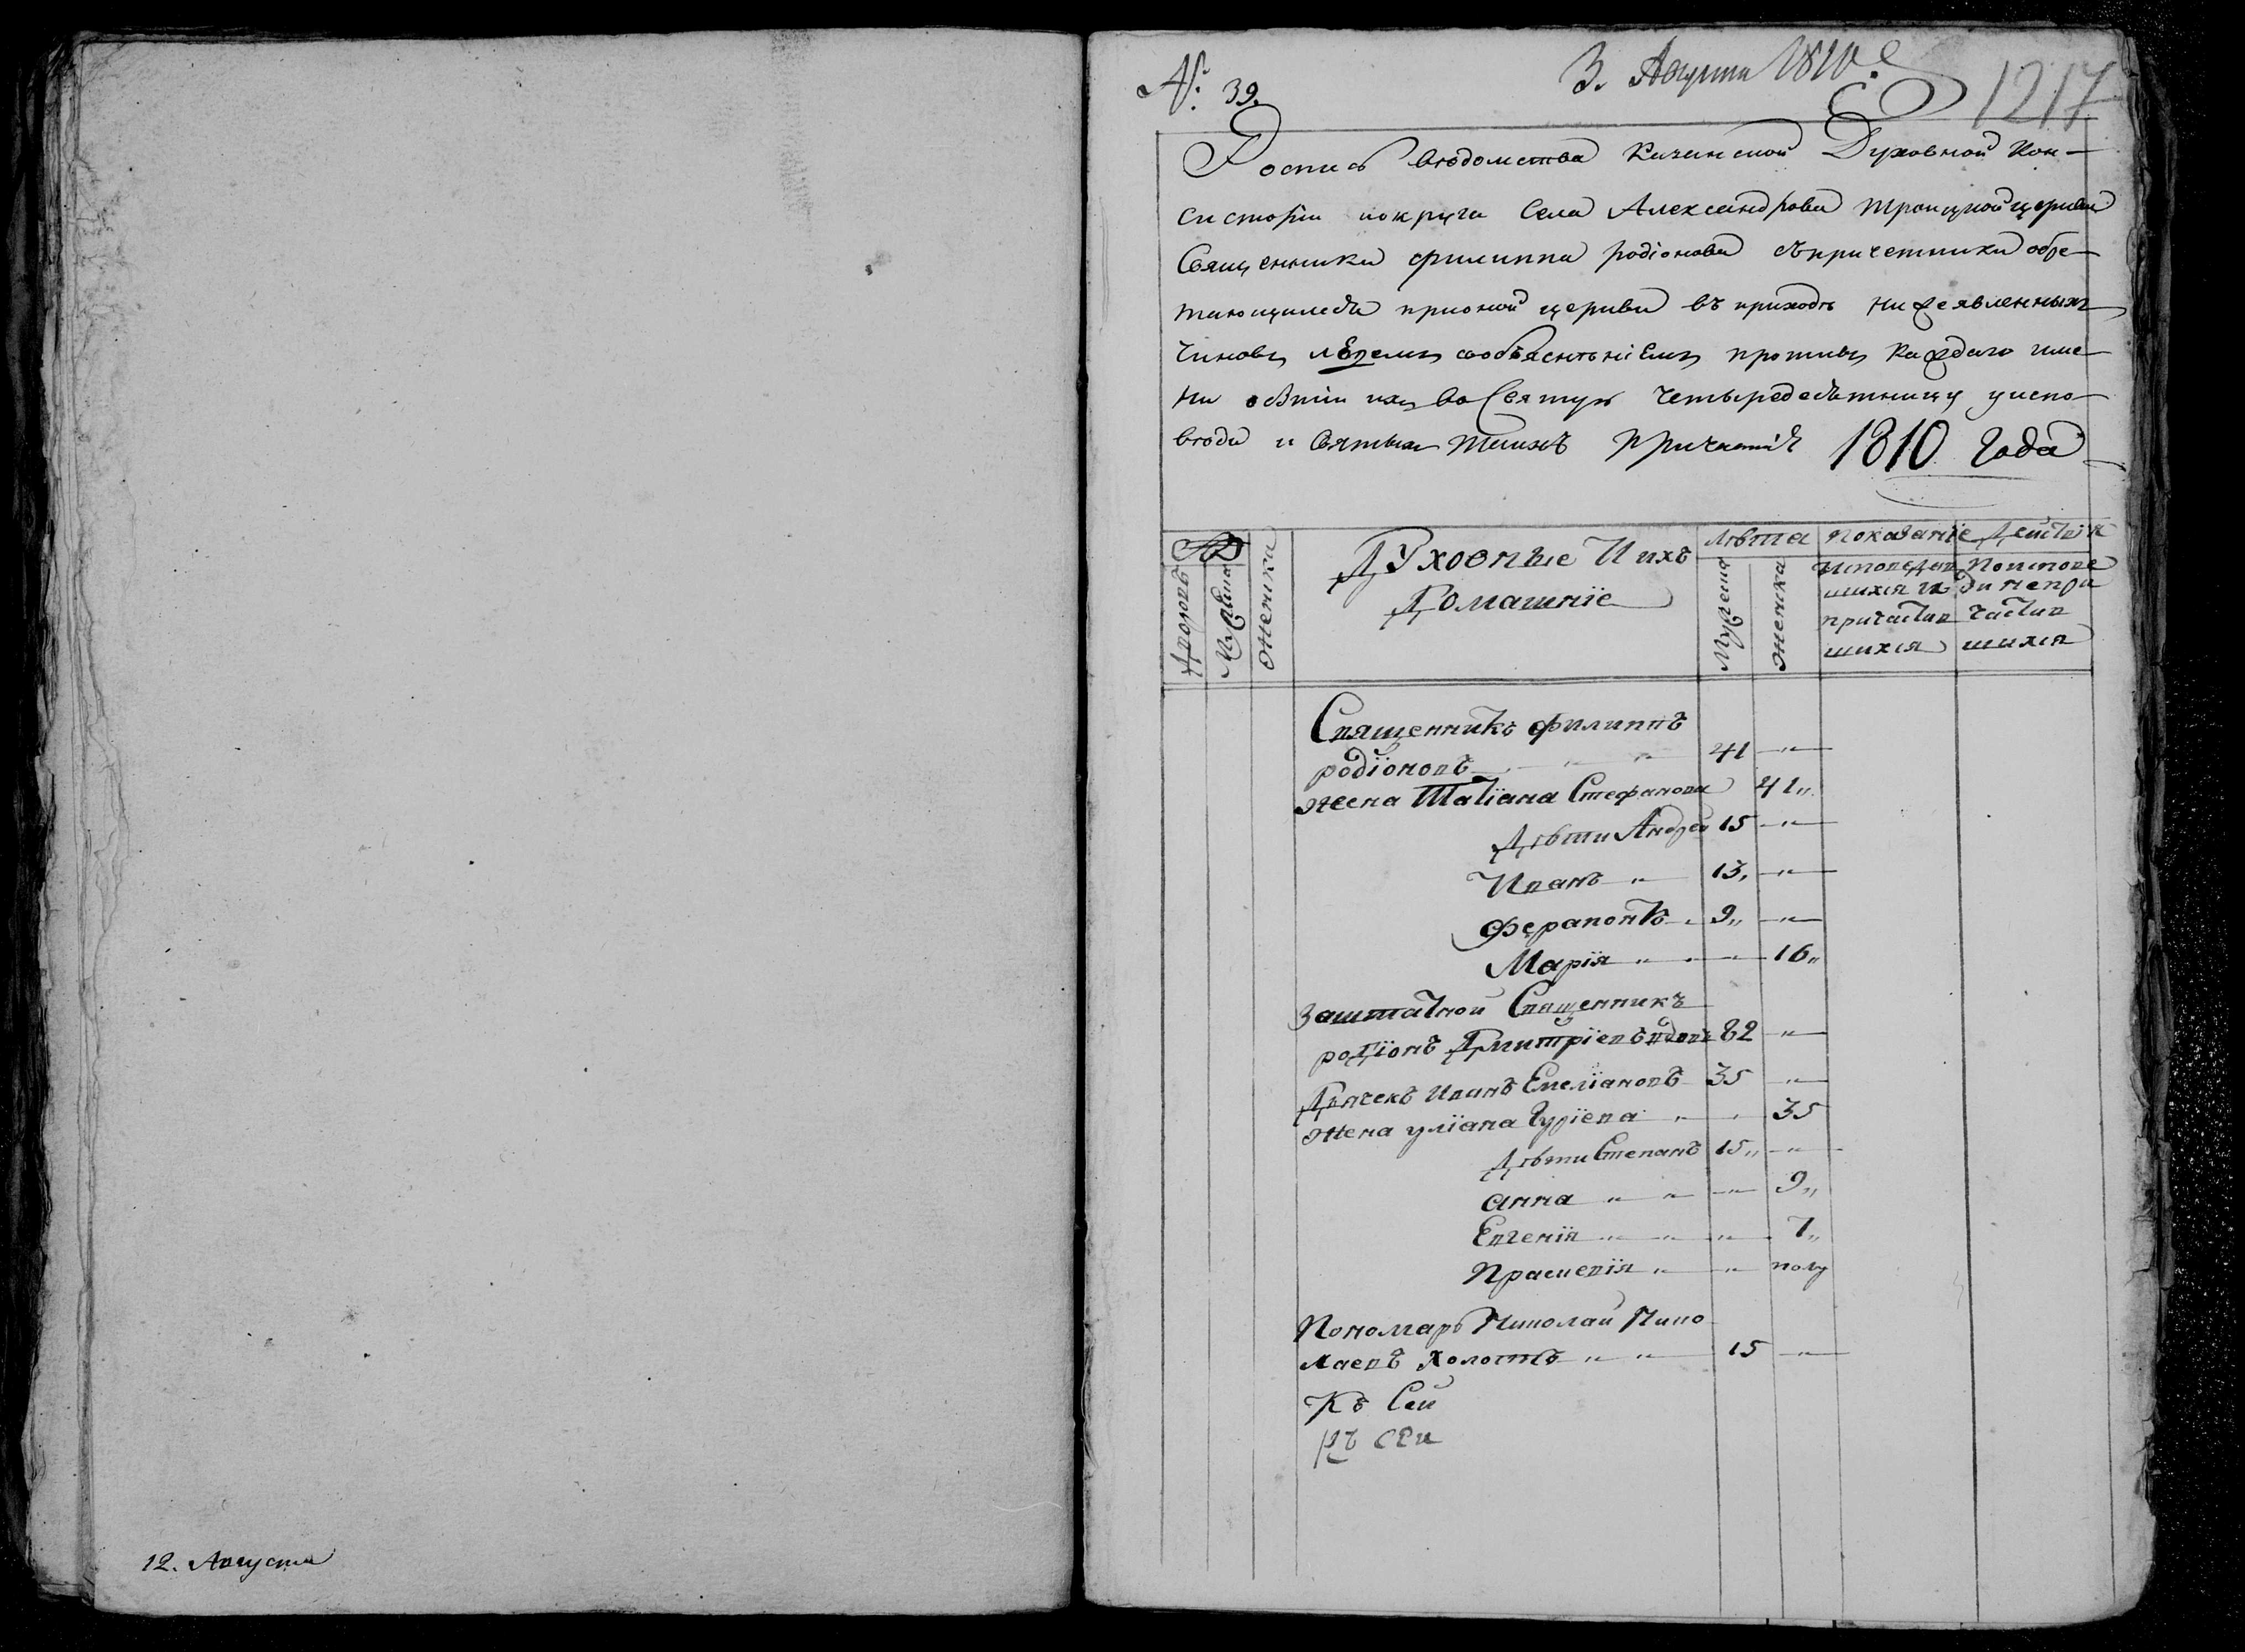 12. Августа
№: 39.
3. Августа 1810.
1217
Роспись вѣдомства Духовной Кон-
систоріи округа Села Александрова троицкой церкви
Священника филиппа родіонова съпричетники обре-
тающимся прионой церкви въ приходѣ нижеявленныхъ
чиновъ людемъ сообъясненіемъ противъ каждаго име-
ни обытіи ихъ во Святую четыредесятницу уиспо-
вѣди и Святыхъ таинъ причастія 1810 Года
Дворовъ
Мужеска
Женска
Духовные И ихъ
Домашніе
Лѣта
Мужеска
Женска
Показаніе Действія
Исповедав
шихся и
причастив
шихся
Поиспове
ди непри
частив
шихся
Священникъ филиппъ
родіоновъ 41 "
жена Татіана Стефанова 41"
Дѣти Андрей 15 "
Иванъ " 13, "
Ферапонтъ 9" "
Марія " " 16"
Заштатной Священникъ
родіонъ Дмитріевъ вдовъ 82 "
Дьячекъ Иванъ Емеліановъ 35 "
жена уліана Гуріева " " 35
Дѣти Степанъ 15" "
анна " " " 9"
Евгенія " " " 7"
Праскевія " " полу
Пономарь Николай Нико
лаевъ холостъ " " 15 "
Къ Сей
Къ сеи